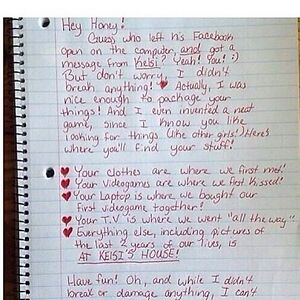 Hey Honey!
Guess who left his Facebook
open on the computer, and got a
message from Keisi? Yeah! You! :)
But don't worry, I didn't
break anything! ♥ Actually, I was
nice enough to package your
things! And I even invented a neat
game, since I know you like
looking for things like other girls! Here's
where you'll find your stuff!
♥ Your clothes are where we first met!
♥ Your Videogames are where we first Kissed!
♥ Your Laptop is where we bought our
first videogame together!
♥ Your T.V is where we went "all the way"
♥ Everything else, including pictures of
the last 2 years of our lives, is
AT KEISI'S HOUSE!
Have fun! Oh, and while I didn't
break or damage anything, I can't